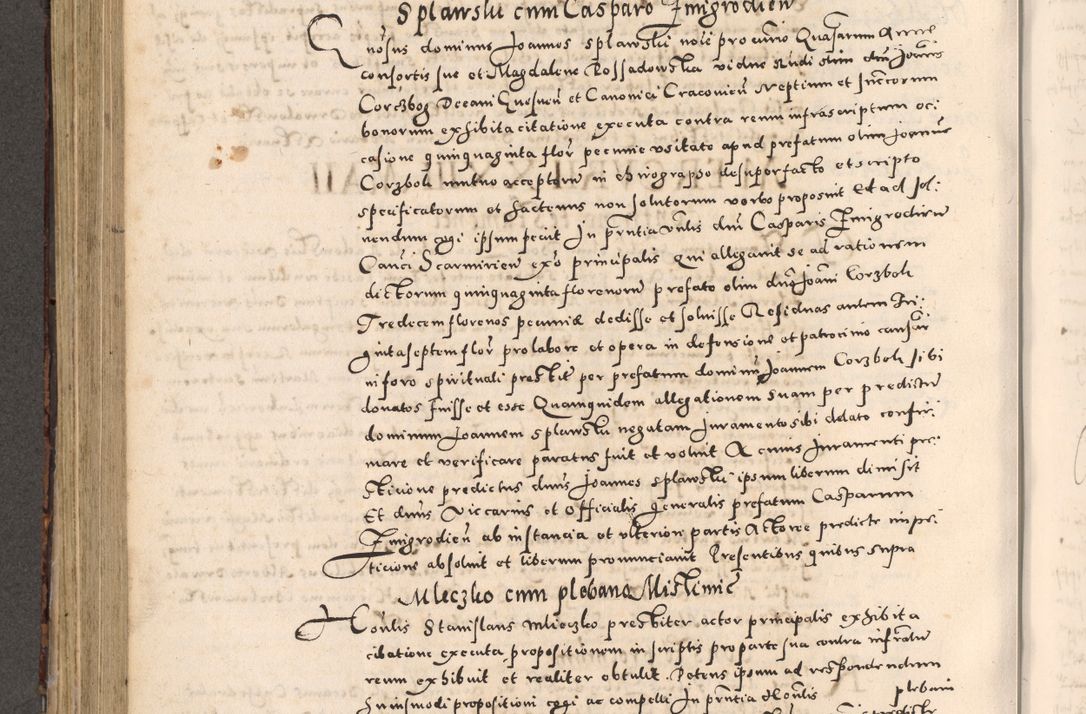 Splawski cum Casparo Zmigrodien
Gnosus dominus Joannes Splawski noĩe procurio Quasarum Anne
consortis sue et Magdalene Rossadowska vidue studi olim dnī Joannis
Corczbog Decani Gnesnen et Canonici Cracovien neptium et succorum
bonorum exhibita citatione executa contra reum infrascriptum oc¦
casione quinquaginta flor pecunie usitate apud prefatum olim Joannem
Corzbok mutuo acceptorum in chirographo desuper facto et scripto
specificatorum et hactenus non solutorum verbo proposuit Et ad sol:
vendum cogi ipsum peciit In pñtia vñlis dnī Casparis Zmigrodien
Canci Scarmirien ex° principalis qui allegavit se ad rationem
dictorum quinquaginta florenorum prefato olim dnō Joanni Corzbok
Tredecem florenos pecunie dedisse et solvisse Residuas autem Tri:
ginta septem flor pro labore et opera in defensione et patrocinio causar
in foro spirituali prestite per prefatum dominum Joannem Corzbok sibi
donatos fuisse et esse Quamquidem allegationem suam per predictum
dominum Joannem Splawski negatam Juramento sibi delato confir:
mare et verificare paratus fuit et voluit A cuius Juramenti pre:
sticione predictus dnus Joannes Splawski ipsum liberum dimisit
Et dnus Viccarius et Officialis generalis prefatum Casparum
Zmigrodien ab instancia et ulteriori partis Actoree predicte impe:
ticione absolvit et liberum pronunciavit Presentibus quibus supra
Mleczko cum plebano Mislimic
Honlis Stanislaus Mleczko presbiter actor principalis exhibita
citatione executa propositionem in scriptis pro parte sua contra infrascr
reum exhibuit et realiter obtulit Petens ipsum ad respondendum
huiusmodi propositioni cogi ac compelli In pñtia Honlis plebani